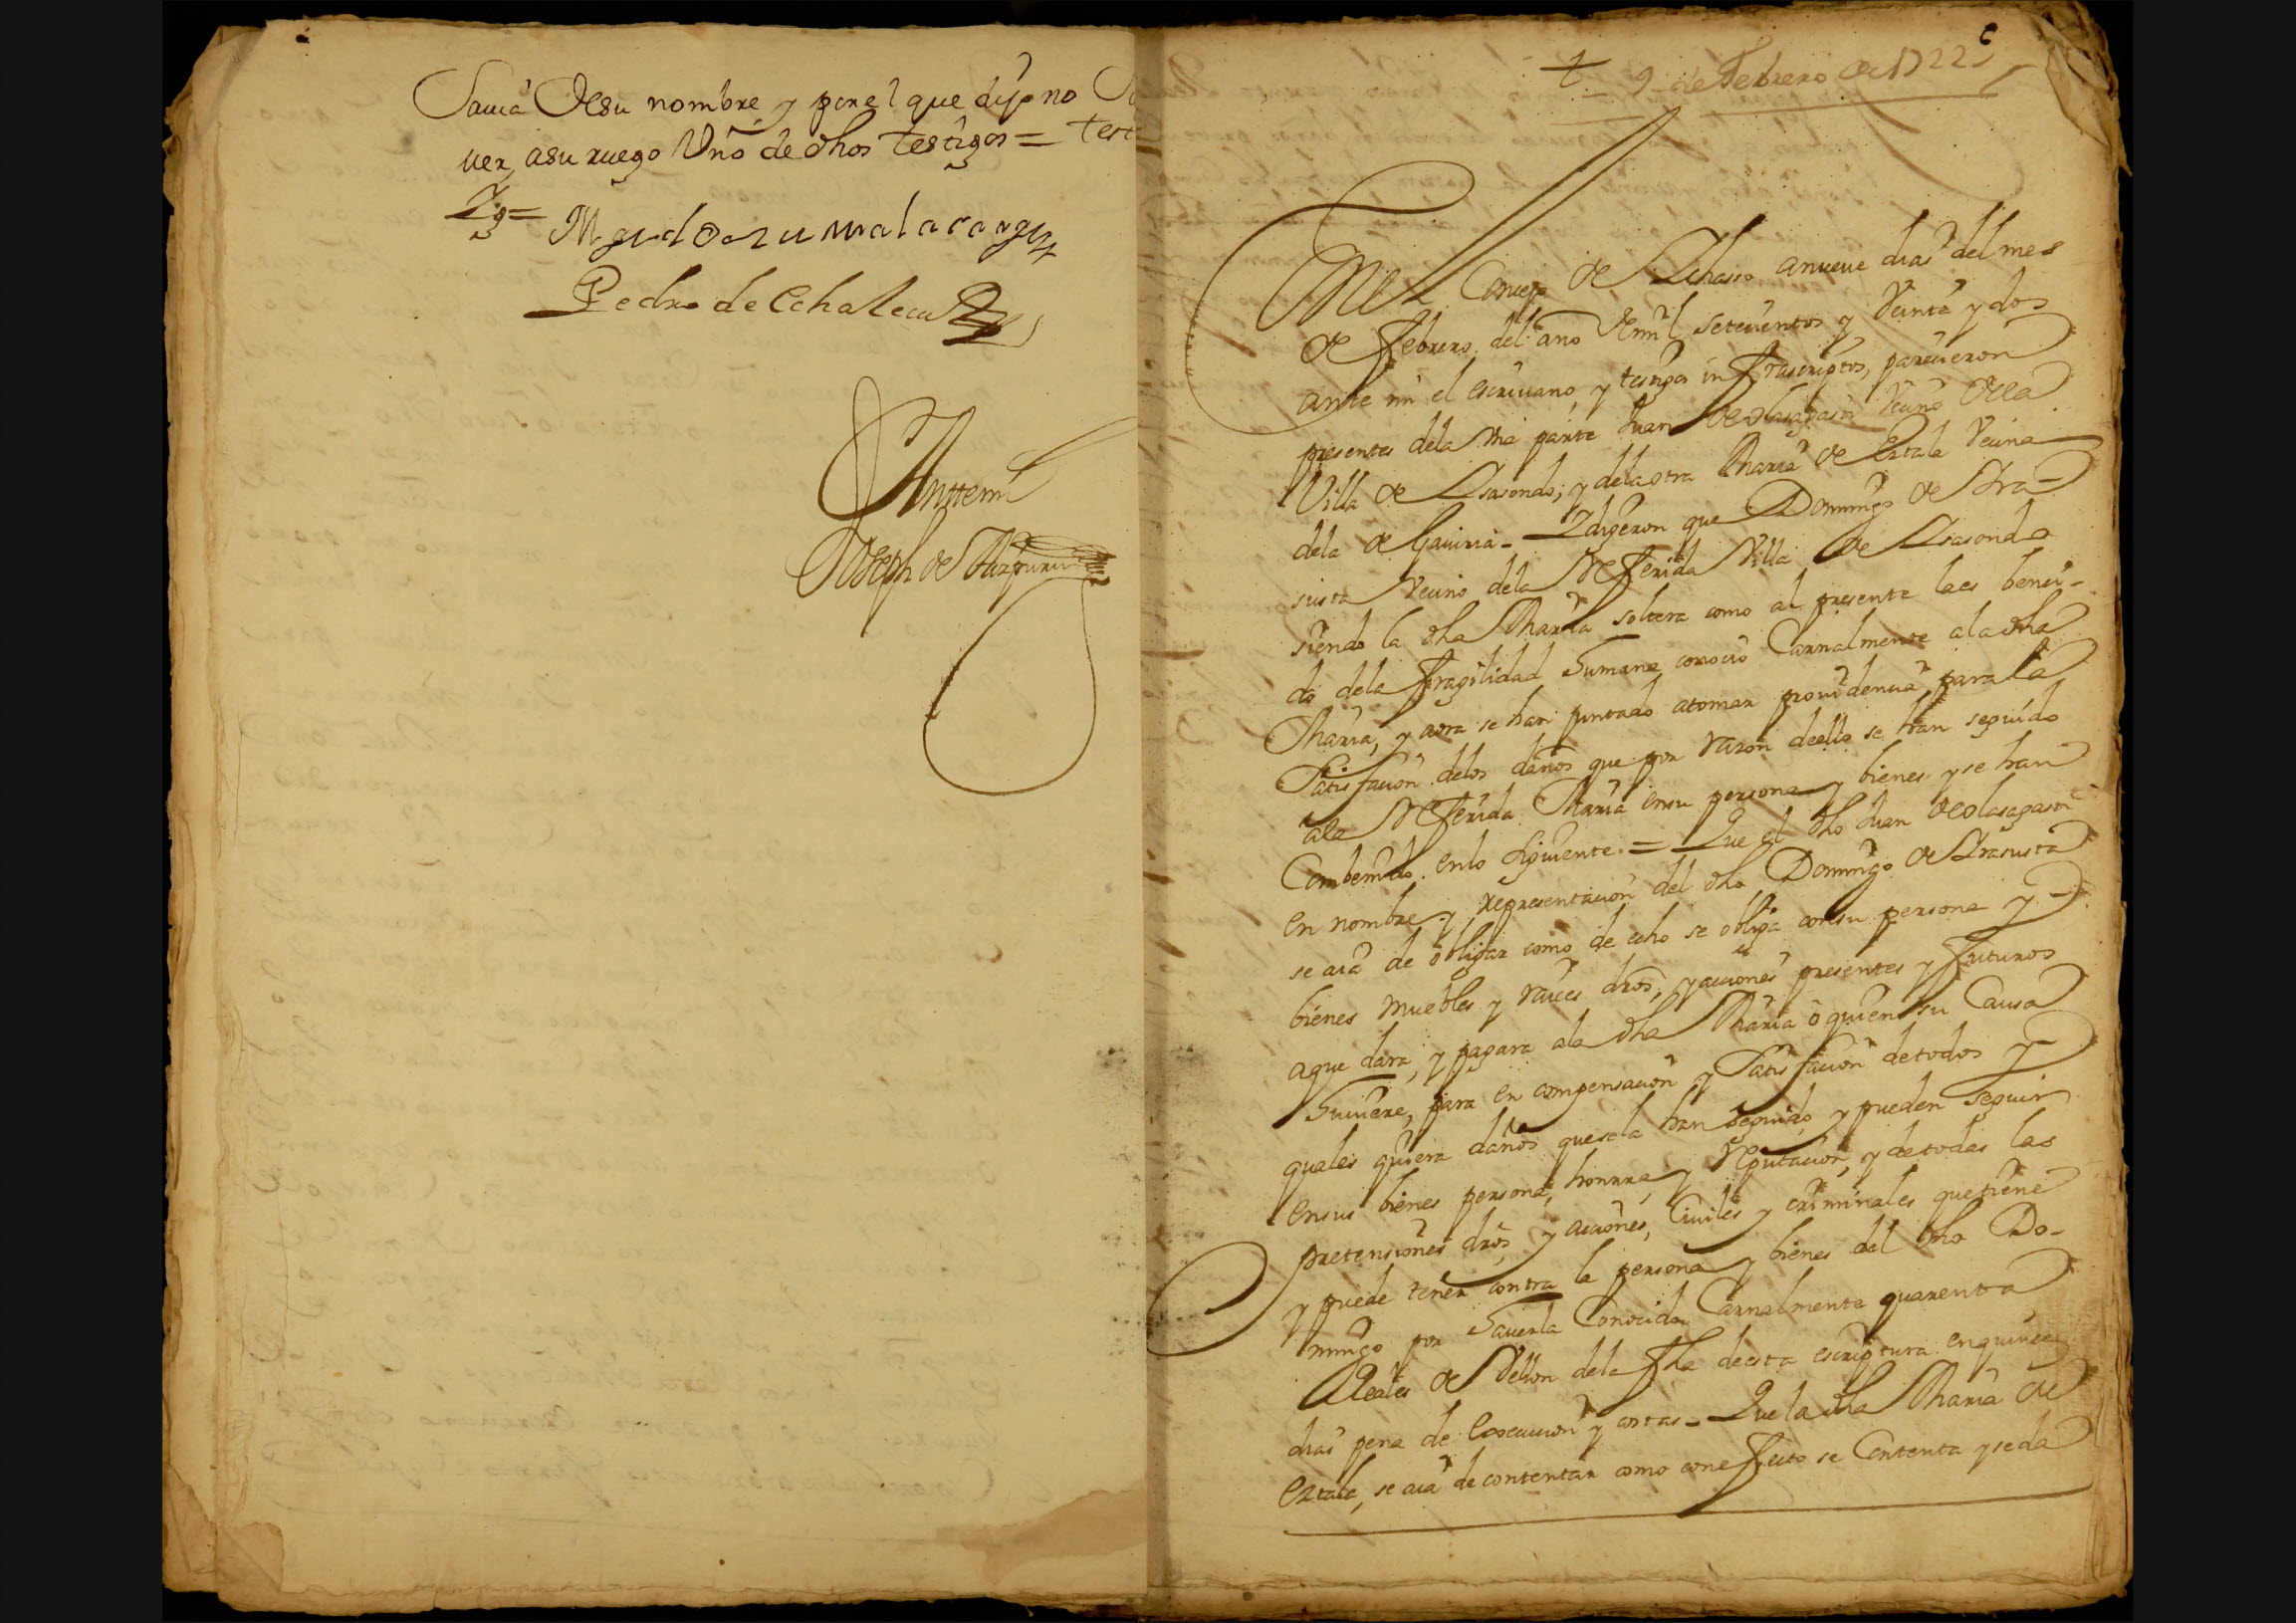 Savia de su nombre, y por el que dijo no Sa
ver, a su ruego Uno de dhos testigos = test
Tigo =
Pedro de Echalecu
Antemi
Joseph de Aizpuru
+ 9 de Febrero de 1722
En el Consejo de Ichasso a nueve dias del mes
de Febrero del año de mil setecientos y Veinte y dos
ante mi el escrivano, y testigos infraescriptos, parecieron
presentes de la una parte Juan de olasagasti Vecino de la
Villa de Isasondo; y de la otra Maria de Eztala Vecina
de la de Gaviria = Y digeron que Domingo de Ira-
susta Vecino de la Referida Villa de Isasondo
siendo la dha Maria soltera como al presente la es benci-
do de la fragilidad humana, conocio Carnalmente a la dha
Maria, y aora se han juntado a tomar providencia para la
Satisfacion de los daños que por razon de ello se han seguido
a la Referida Maria en su persona y bienes y se han
Combenido en lo siguiente = Que el dho Juan de olasagasti
en nombre y representacion del dho Domingo de Irasusta
se aia de obligar como de echo se obliga con su persona y
bienes muebles y raices dros, y acciones presentes y futuros
a que dara, y pagara a la dha Maria o quien su Causa
huviere, para en compensacion y Satisfacion de todos y
quales quiera daños que se la han seguido y pueden seguir
en sus bienes persona, honrra, y Reputacion, y de todas las
pretensiones dros, y acciones, Civiles y criminales que tiene
y puede tener contra la persona y bienes del dho Do-
mingo por haverla Conocido Carnalmente quarenta
Reales de Vellon de la fha de esta escriptura en quince
dias pena de Execucion y costas = Que la dha Maria de
Eztala, se aia de contentar como con efecto se Contenta y se da